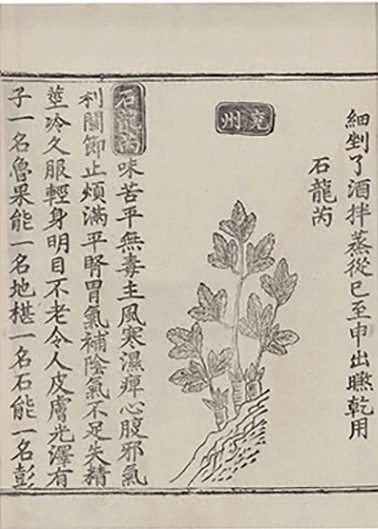 細剉了酒拌蒸從巳至申出乾用
石龍芮
兗州
石龍芮味苦平無毒主風寒濕痺心腹邪氣
利關節止煩滿平腎胃氣補陰氣不足失精
莖冷久服輕身明目不老令人皮膚光澤有
子一名魯果能一名地椹一名石能一名彭